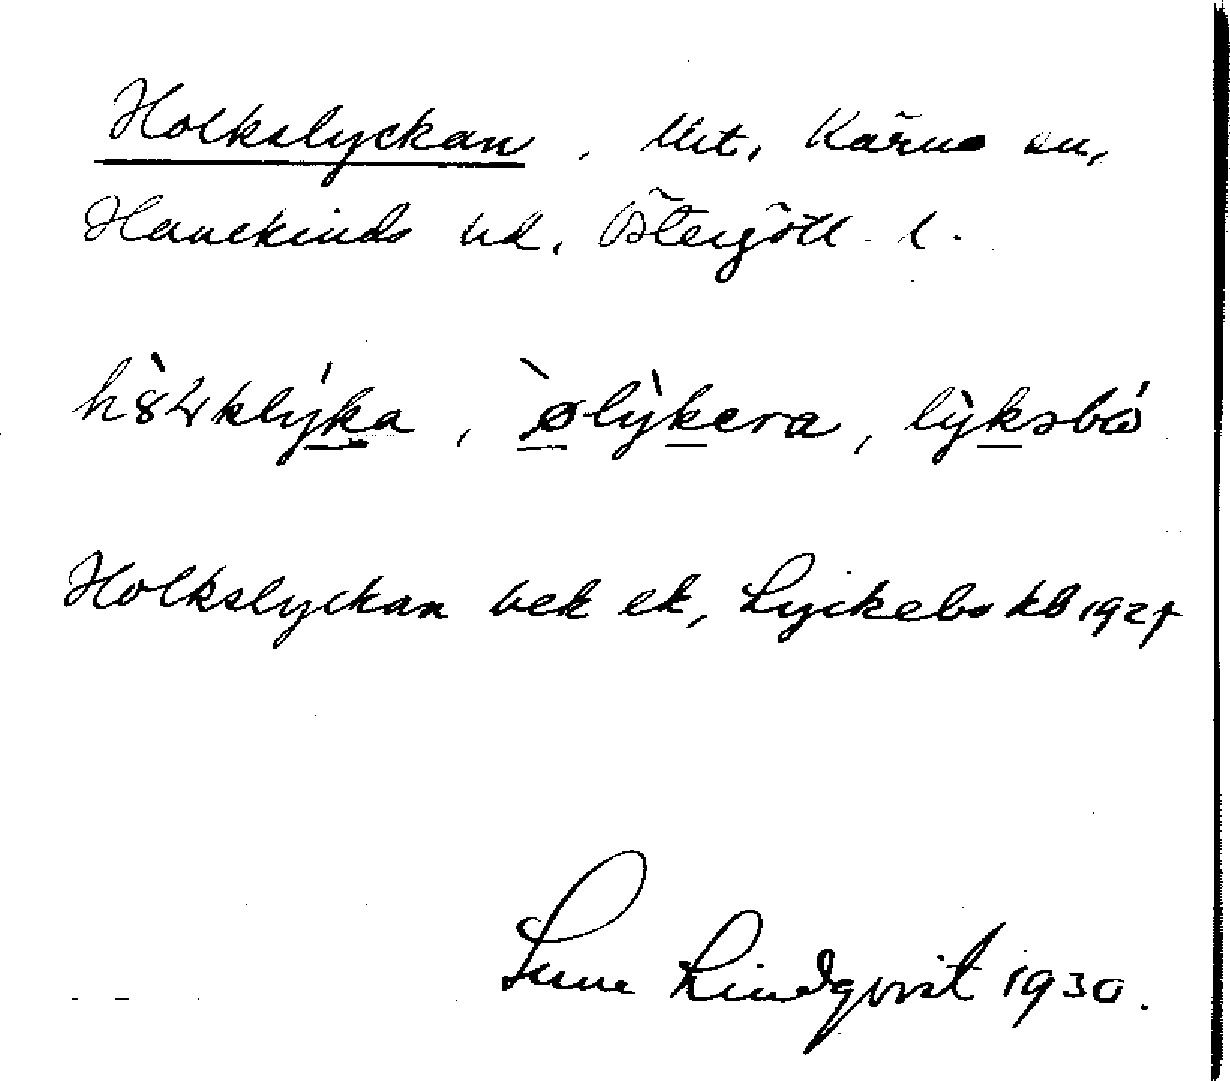 Holkslyckan, utt. Kärna sn,
Hanekinds hd. Östergötl. l.
hò8lrklýka, ølỳkera, lỳksbó
Holkslyckan bek ek, Lyckebo kb 1927
Sune Lindqvist 1930.